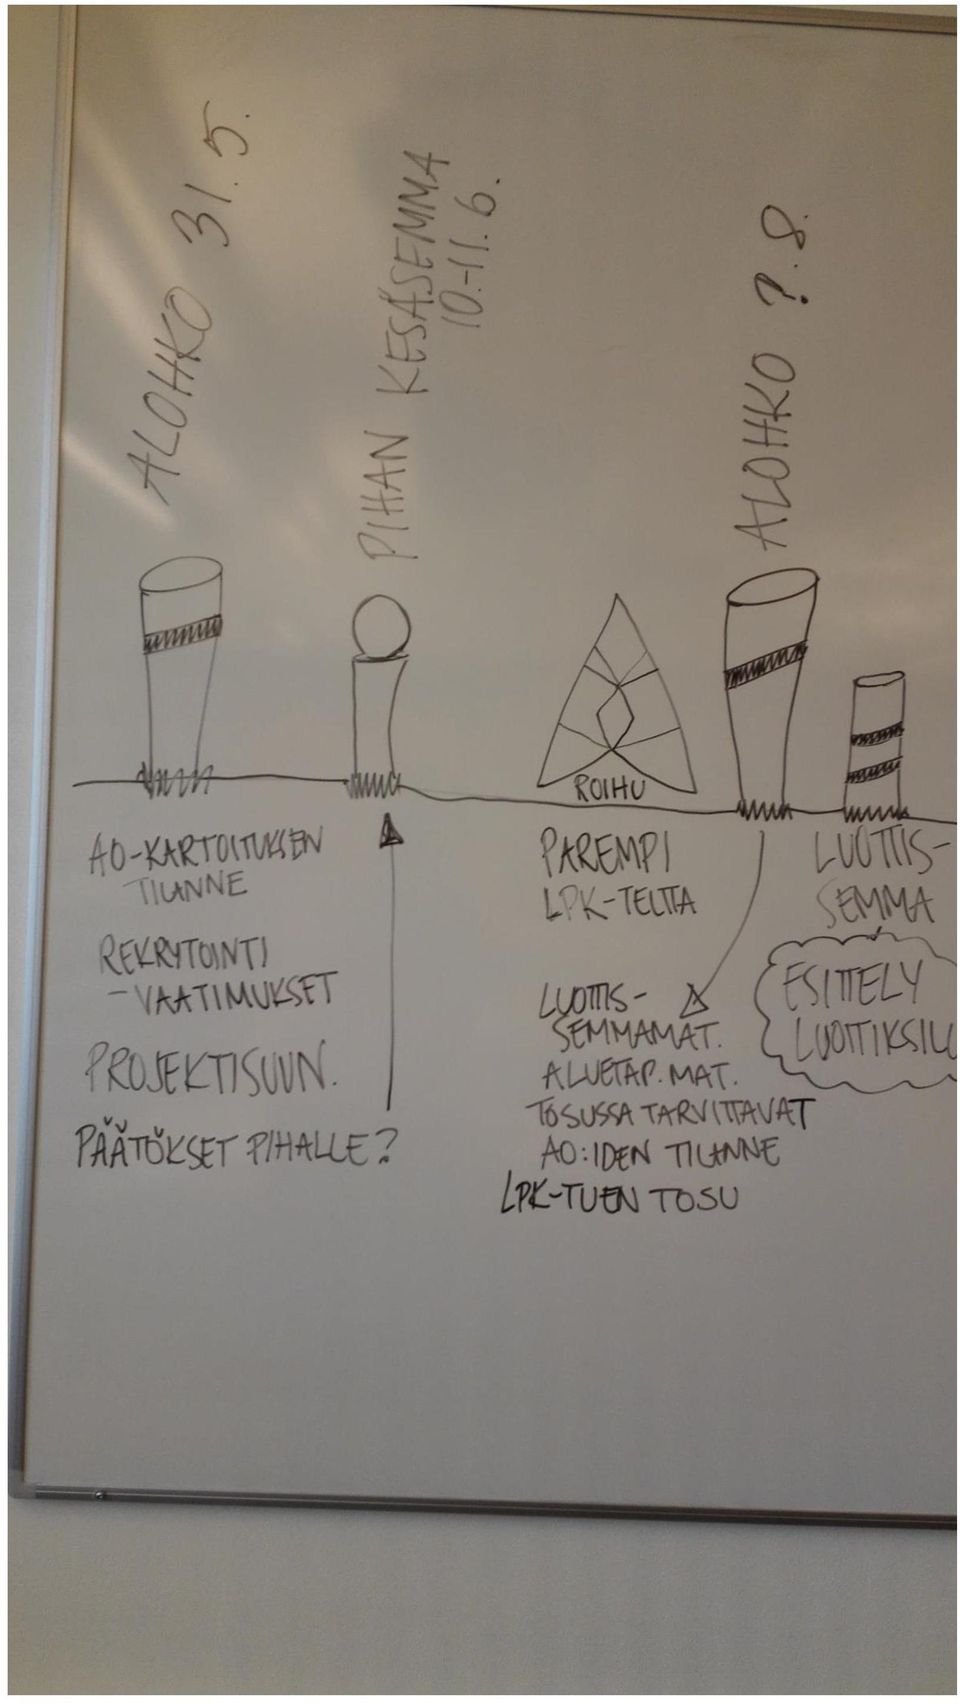 ALOHKO 31.5.
PIHAN KESÄSEMMA
10.-11.6.
ALOHKO ?.8.
ROIHU
AO-KARTOITUKSEN
TILANNE
REKRYTOINTI
-VAATIMUKSET
PROJEKTISUUN.
PÄÄTÖKSET PIHALLE?
PAREMPI
LPK-TELTTA
LUOTTIS-
SEMMAMAT.
ALUETAP. MAT.
TOSUSSA TARVITTAVAT
AO:IDEN TILANNE
LPK-TUEN TOSU
LUOTTIS-
SEMMA
ESITTELY